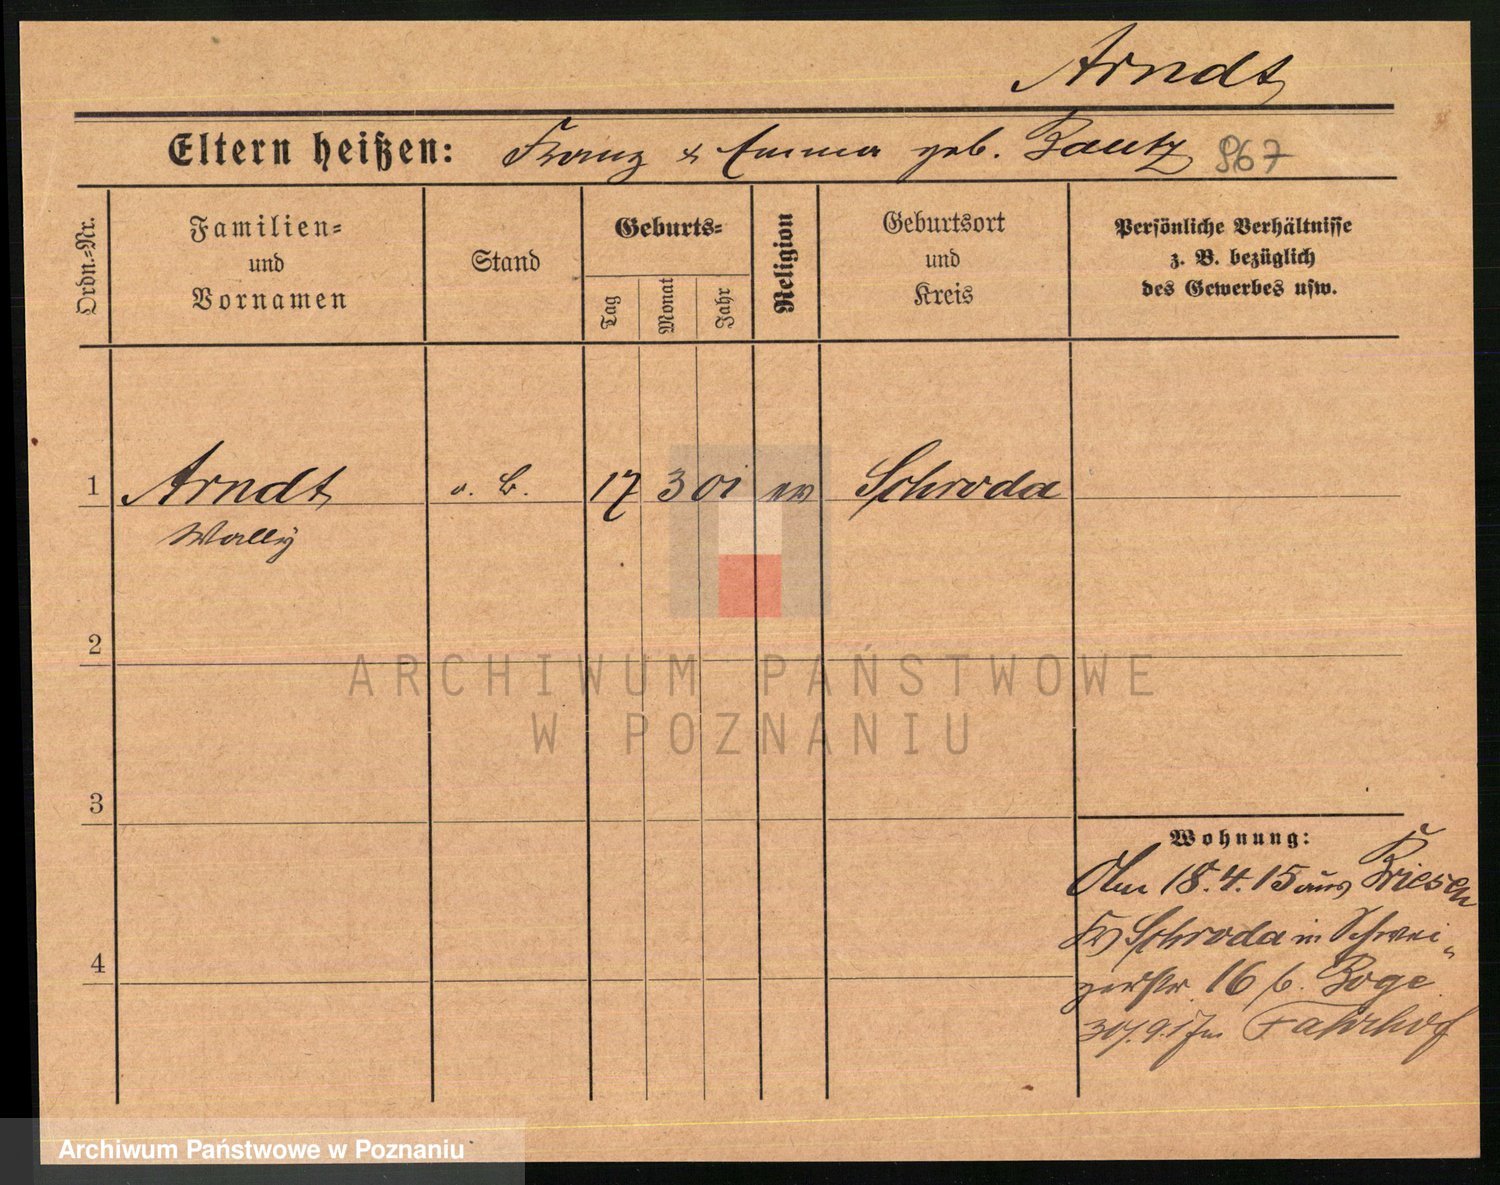 Arndt
Eltern heißen: Franz & Emma geb. Bautz 867
Ordn.=Nr.
Familien=
und
Vornamen
Stand
Geburts=
Tag
Monat
Jahr
Religion
Geburtsort
und
Kreis
Persönliche Verhältnisse
z. B. bezüglich
des Gewerbes usw.
1 Arndt o. B. 17 3 01 ev Schroda
Wally
2
3
4
Wohnung:
18.4.15 aus Briesen
Kr Schroda in Schwei
zerstr. 16 b. Boge
Fahrhof
ARCHIWUM PAŃSTWOWE
W POZNANIU
Archiwum Państwowe w Poznaniu